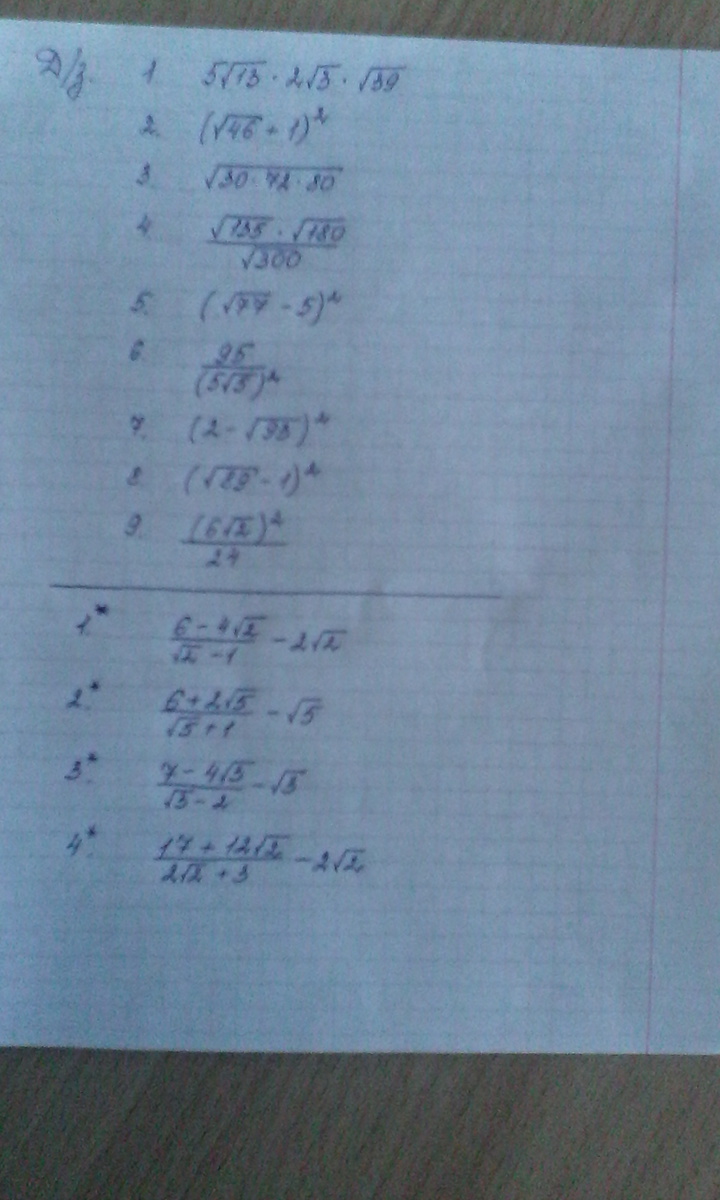 Д/з. 1 5√13 · 2√3 · √39
2. (√46 + 1)²
3. √30·72·80
4 √135 · √180 / √300
5. (√77 - 5)²
6. 95 / (5√5)²
7. (2 - √93)²
8. (√89 - 1)²
9. (6√2)² / 24
1.* 6 - 4√2 / √2 - 1 - 2√2
2.* 6 + 2√5 / √5 + 1 - √5
3.* 7 - 4√3 / √3 - 2 - √3
4.* 17 + 12√2 / 2√2 + 3 - 2√2